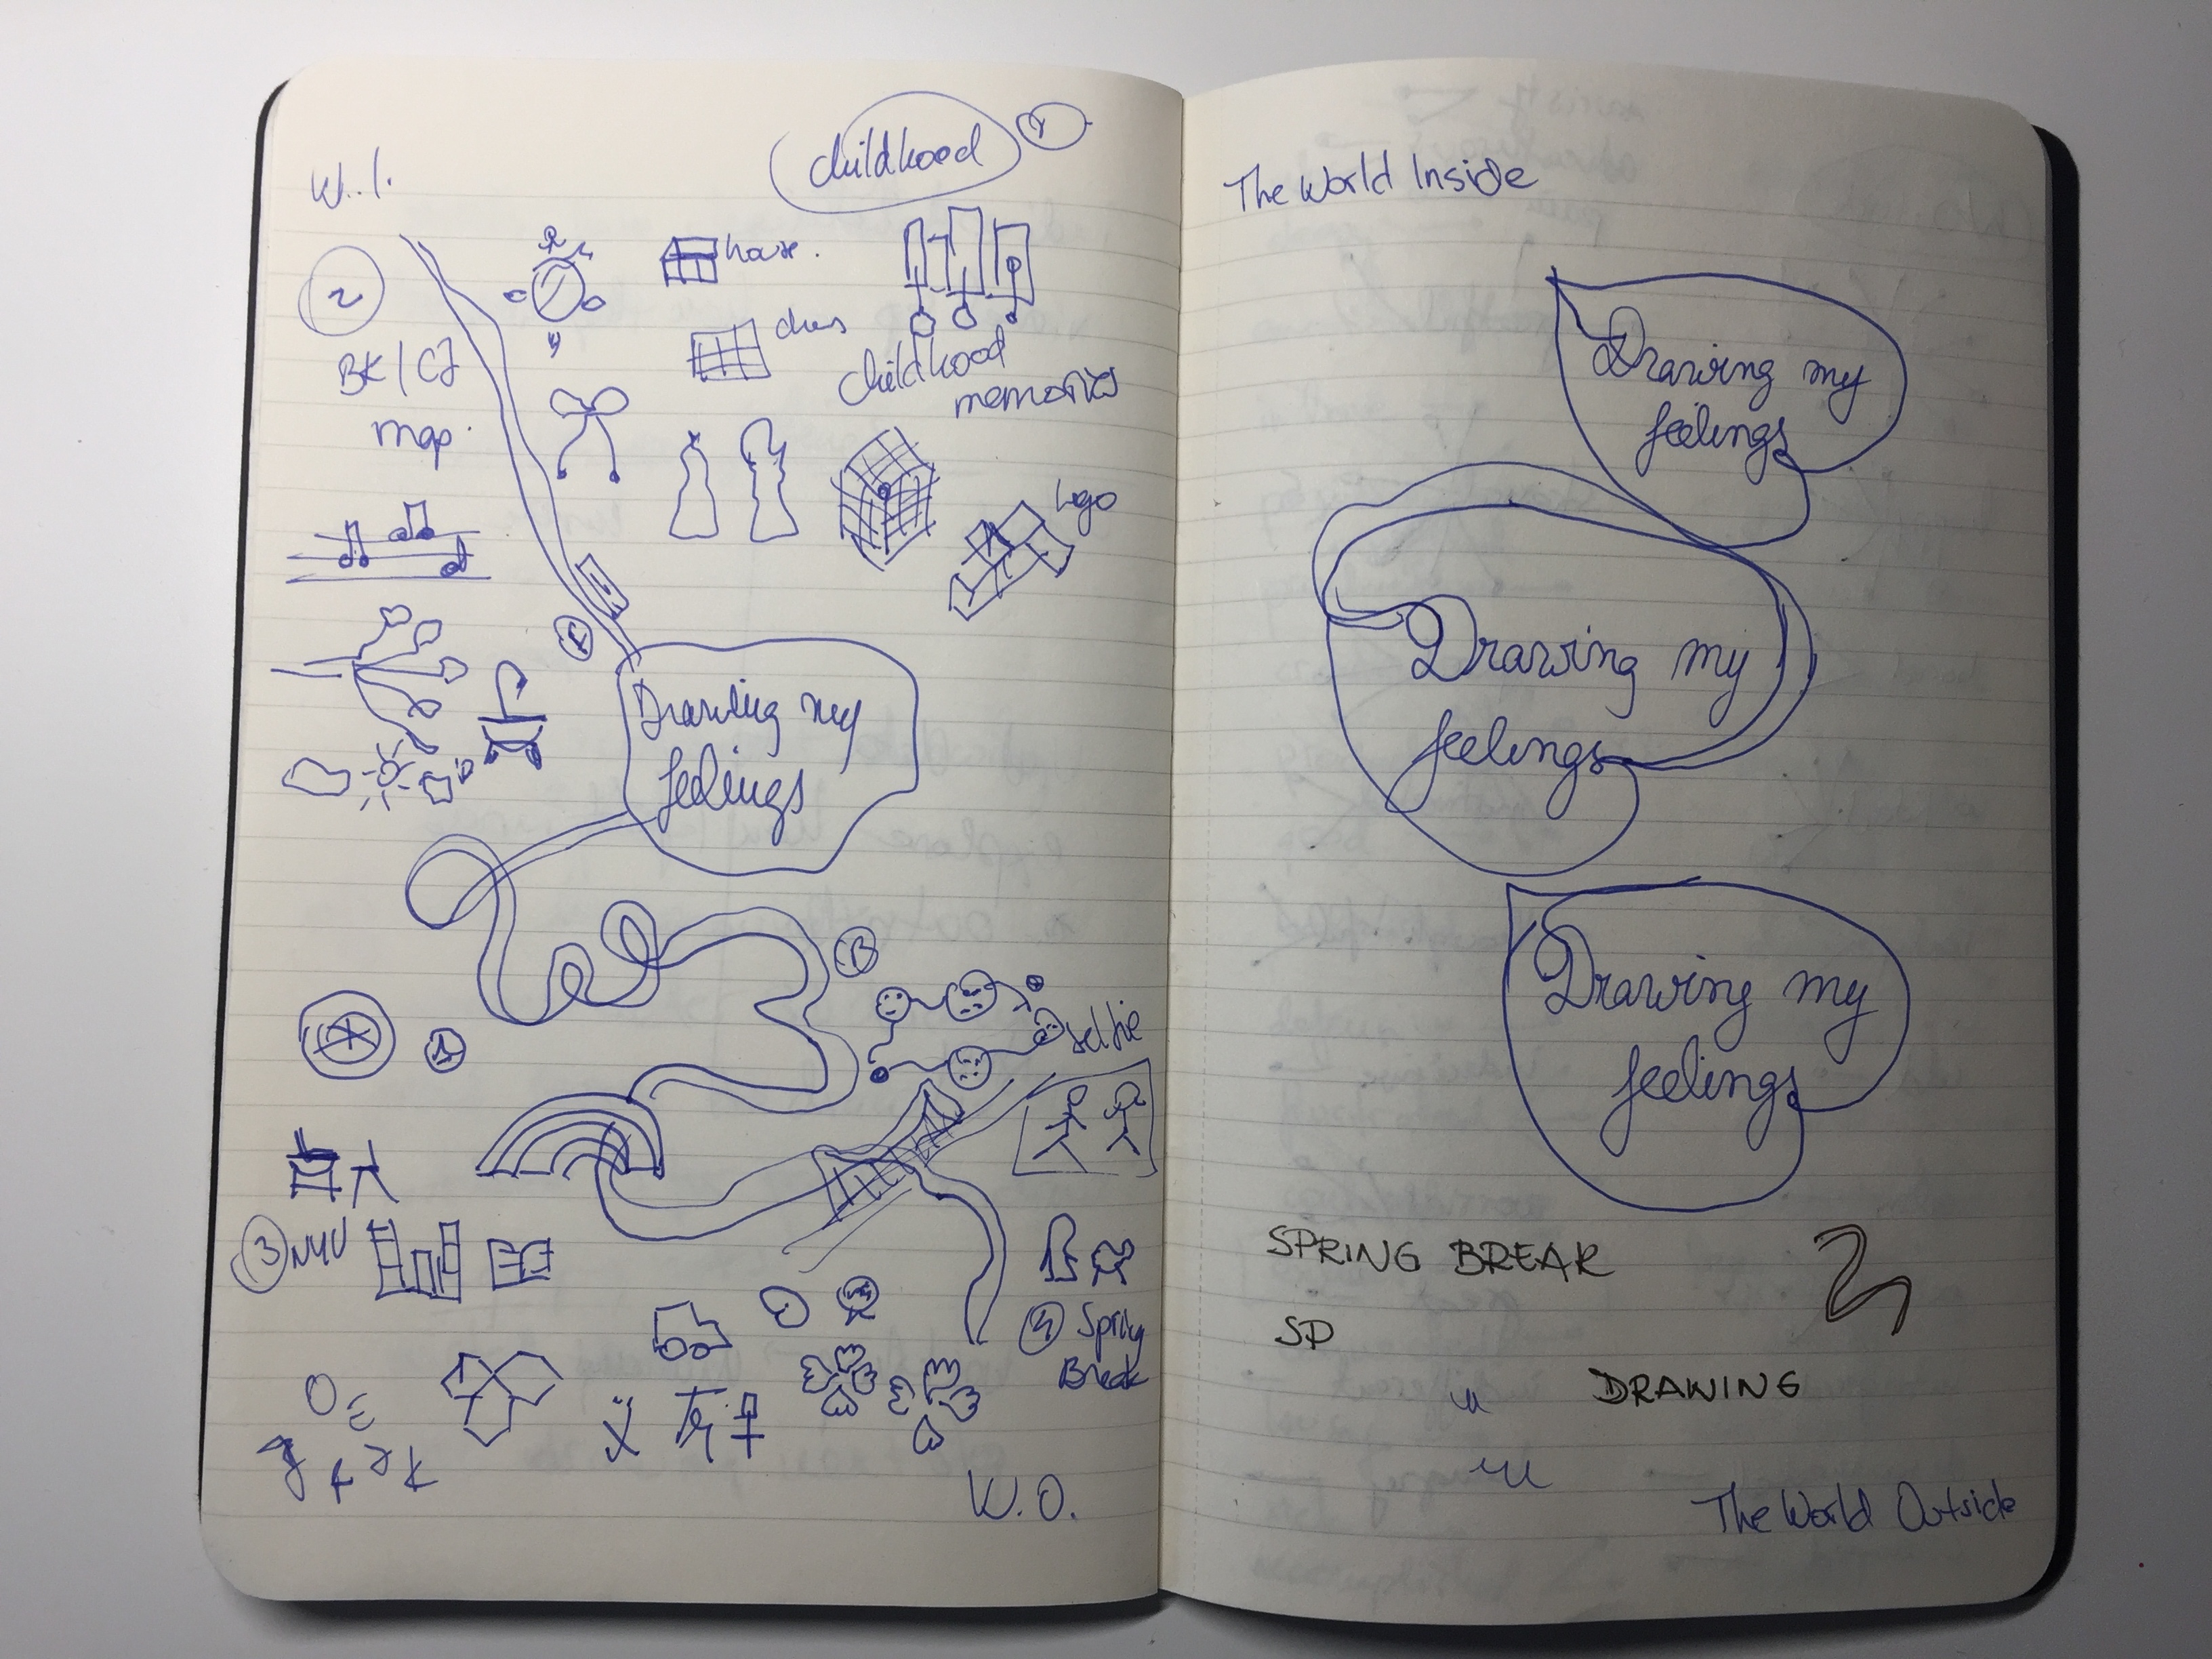 childhood
W.I.
2
BK/CJ
map
house.
ches
childhood
memories
Lego
Drawing my
feelings
B
selfie
3 NYU
4 Spring
Break
W.O.
The World Inside
Drawing my
feelings
Drawing my
feelings
Drawing my
feelings
SPRING BREAK
SP
DRAWING
The World Outside